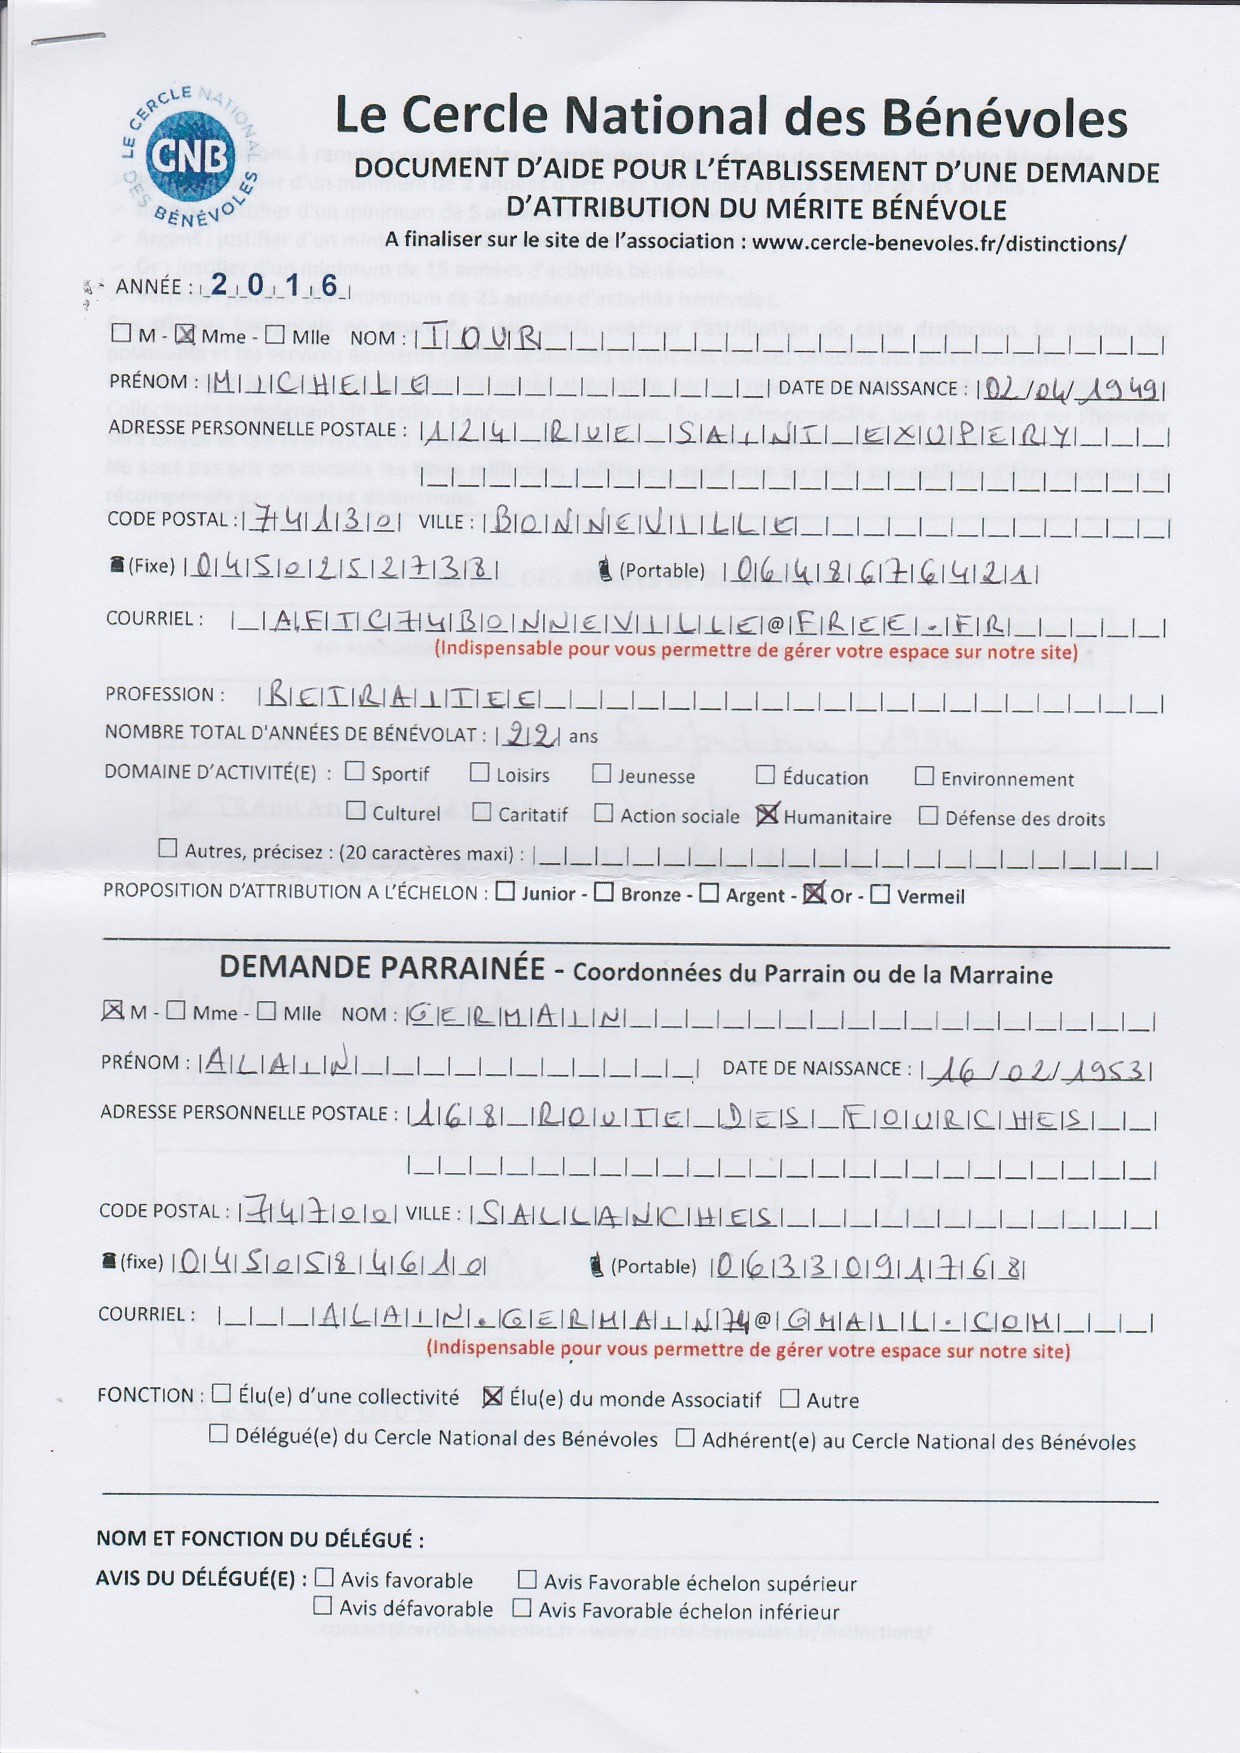 LE CERCLE NATIONAL DES BÉNÉVOLES
CNB
Le Cercle National des Bénévoles
DOCUMENT D'AIDE POUR L'ÉTABLISSEMENT D'UNE DEMANDE
D'ATTRIBUTION DU MÉRITE BÉNÉVOLE
A finaliser sur le site de l'association : www.cercle-benevoles.fr/distinctions/
ANNÉE : 2016
☐ M - ☒ Mme - ☐ Mlle NOM : TOUR
PRÉNOM : MICHELE DATE DE NAISSANCE : 02/04/1949
ADRESSE PERSONNELLE POSTALE : 124 RUE SAINT EXUPERY
CODE POSTAL : 74130 VILLE : BONNEVILLE
(Fixe) 0450252738 (Portable) 0648676421
COURRIEL : AFTC74BONNEVILLE@FREE.FR
(Indispensable pour vous permettre de gérer votre espace sur notre site)
PROFESSION : RETRAITEE
NOMBRE TOTAL D'ANNÉES DE BÉNÉVOLAT : 22 ans
DOMAINE D'ACTIVITÉ(E) : ☐ Sportif ☐ Loisirs ☐ Jeunesse ☐ Éducation ☐ Environnement
☐ Culturel ☐ Caritatif ☐ Action sociale ☒ Humanitaire ☐ Défense des droits
☐ Autres, précisez : (20 caractères maxi) :
PROPOSITION D'ATTRIBUTION A L'ÉCHELON : ☐ Junior - ☐ Bronze - ☐ Argent - ☒ Or - ☐ Vermeil
DEMANDE PARRAINÉE - Coordonnées du Parrain ou de la Marraine
☒ M - ☐ Mme - ☐ Mlle NOM : GERMAIN
PRÉNOM : ALAIN DATE DE NAISSANCE : 16/02/1953
ADRESSE PERSONNELLE POSTALE : 168 ROUTE DES FOURCHES
CODE POSTAL : 74700 VILLE : SALLANCHES
(fixe) 0450584610 (Portable) 0633091768
COURRIEL : ALAIN.GERMAIN74@GMAIL.COM
(Indispensable pour vous permettre de gérer votre espace sur notre site)
FONCTION : ☐ Élu(e) d'une collectivité ☒ Élu(e) du monde Associatif ☐ Autre
☐ Délégué(e) du Cercle National des Bénévoles ☐ Adhérent(e) au Cercle National des Bénévoles
NOM ET FONCTION DU DÉLÉGUÉ :
AVIS DU DÉLÉGUÉ(E) : ☐ Avis favorable ☐ Avis Favorable échelon supérieur
☐ Avis défavorable ☐ Avis Favorable échelon inférieur